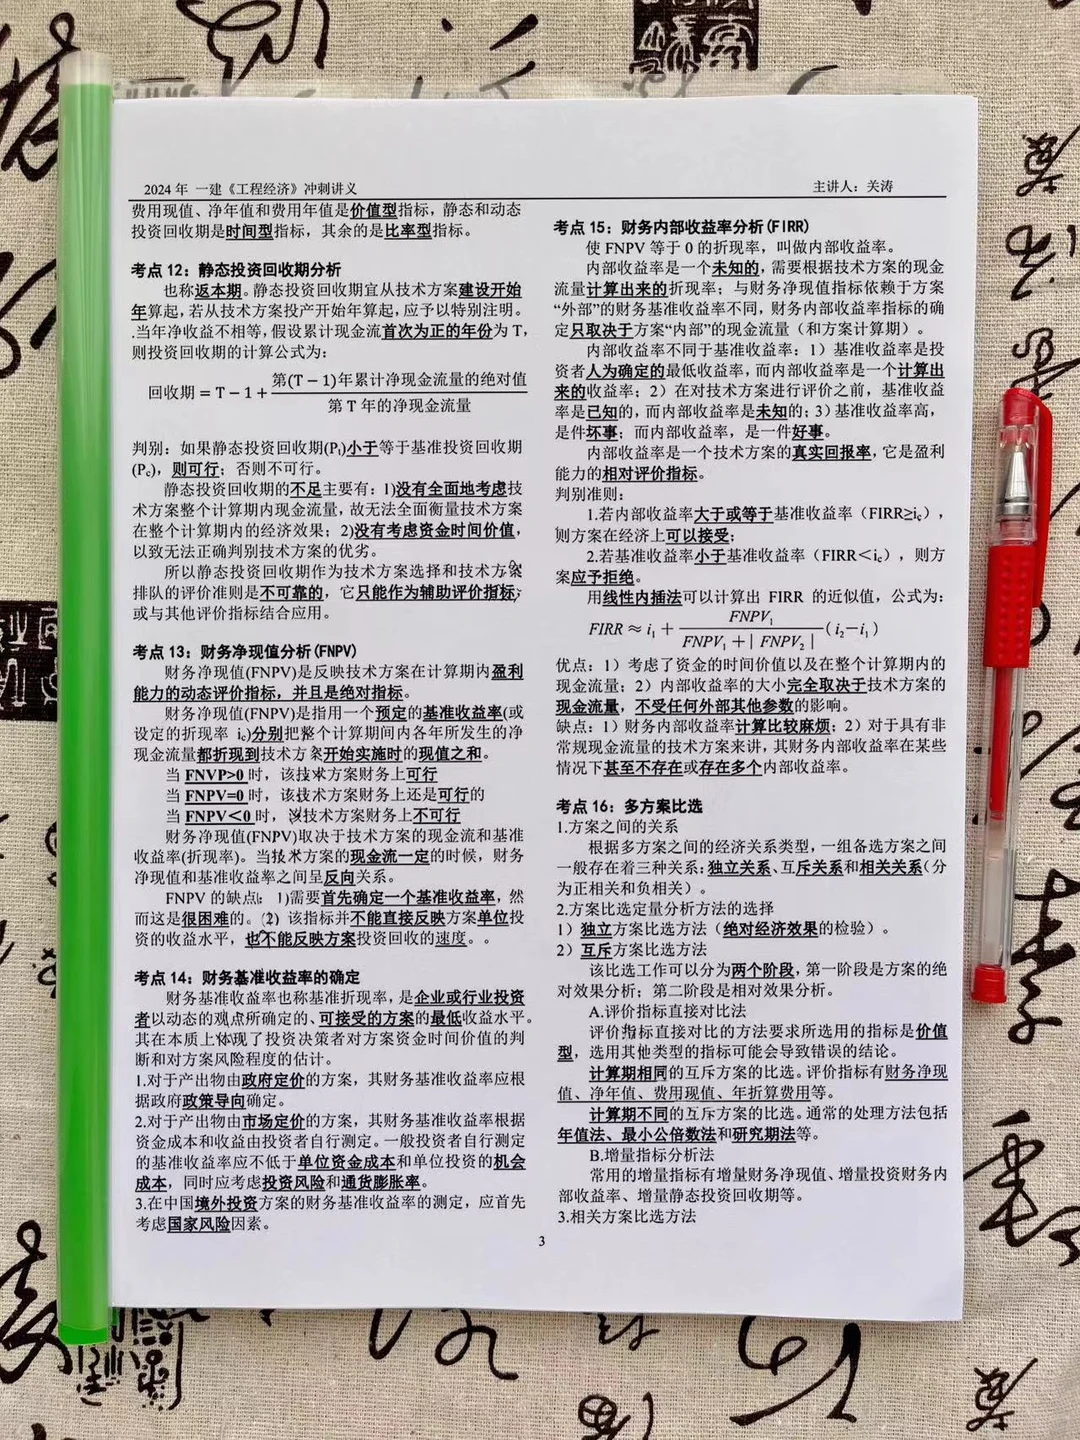 2024 年 一建《工程经济》冲刺讲义
主讲人：关涛
费用现值、净年值和费用年值是价值型指标，静态和动态
投资回收期是时间型指标，其余的是比率型指标。
考点 12：静态投资回收期分析
也称返本期。静态投资回收期宜从技术方案建设开始
年算起，若从技术方案投产开始年算起，应予以特别注明。
.当年净收益不相等，假设累计现金流首次为正的年份为 T，
则投资回收期的计算公式为：
回收期 = T − 1 + 第(T − 1)年累计净现金流量的绝对值
第 T 年的净现金流量
判别：如果静态投资回收期(Pt)小于等于基准投资回收期
(Pc)，则可行；否则不可行。
静态投资回收期的不足主要有：1)没有全面地考虑技
术方案整个计算期内现金流量，故无法全面衡量技术方案
在整个计算期内的经济效果；2)没有考虑资金时间价值，
以致无法正确判别技术方案的优劣。
所以静态投资回收期作为技术方案选择和技术方案
排队的评价准则是不可靠的，它只能作为辅助评价指标，
或与其他评价指标结合应用。
考点 13：财务净现值分析(FNPV)
财务净现值(FNPV)是反映技术方案在计算期内盈利
能力的动态评价指标，并且是绝对指标。
财务净现值(FNPV)是指用一个预定的基准收益率(或
设定的折现率 ic)分别把整个计算期间内各年所发生的净
现金流量都折现到技术方案开始实施时的现值之和。
当 FNVP>0 时，该技术方案财务上可行
当 FNPV=0 时，该技术方案财务上还是可行的
当 FNPV＜0 时，该技术方案财务上不可行
财务净现值(FNPV)取决于技术方案的现金流和基准
收益率(折现率)。当技术方案的现金流一定的时候，财务
净现值和基准收益率之间呈反向关系。
FNPV 的缺点：1)需要首先确定一个基准收益率，然
而这是很困难的。(2) 该指标并不能直接反映方案单位投
资的收益水平，也不能反映方案投资回收的速度。。
考点 14：财务基准收益率的确定
财务基准收益率也称基准折现率，是企业或行业投资
者以动态的观点所确定的、可接受的方案的最低收益水平。
其在本质上体现了投资决策者对方案资金时间价值的判
断和对方案风险程度的估计。
1.对于产出物由政府定价的方案，其财务基准收益率应根
据政府政策导向确定。
2.对于产出物由市场定价的方案，其财务基准收益率根据
资金成本和收益由投资者自行测定。一般投资者自行测定
的基准收益率应不低于单位资金成本和单位投资的机会
成本，同时应考虑投资风险和通货膨胀率。
3.在中国境外投资方案的财务基准收益率的测定，应首先
考虑国家风险因素。
考点 15：财务内部收益率分析(FIRR)
使 FNPV 等于 0 的折现率，叫做内部收益率。
内部收益率是一个未知的，需要根据技术方案的现金
流量计算出来的折现率；与财务净现值指标依赖于方案
“外部”的财务基准收益率不同，财务内部收益率指标的确
定只取决于方案“内部”的现金流量（和方案计算期）。
内部收益率不同于基准收益率：1）基准收益率是投
资者人为确定的最低收益率，而内部收益率是一个计算出
来的收益率；2）在对技术方案进行评价之前，基准收益
率是已知的，而内部收益率是未知的；3）基准收益率高，
是件坏事；而内部收益率，是一件好事。
内部收益率是一个技术方案的真实回报率，它是盈利
能力的相对评价指标。
判别准则：
1.若内部收益率大于或等于基准收益率（FIRR≥ic），
则方案在经济上可以接受；
2.若基准收益率小于基准收益率（FIRR＜ic），则方
案应予拒绝。
用线性内插法可以计算出 FIRR 的近似值，公式为：
FIRR ≈ i1 + FNPV1
FNPV1 + | FNPV2 | ( i2 − i1 )
优点：1）考虑了资金的时间价值以及在整个计算期内的
现金流量；2）内部收益率的大小完全取决于技术方案的
现金流量，不受任何外部其他参数的影响。
缺点：1）财务内部收益率计算比较麻烦；2）对于具有非
常规现金流量的技术方案来讲，其财务内部收益率在某些
情况下甚至不存在或存在多个内部收益率。
考点 16：多方案比选
1.方案之间的关系
根据多方案之间的经济关系类型，一组备选方案之间
一般存在着三种关系：独立关系、互斥关系和相关关系（分
为正相关和负相关）。
2.方案比选定量分析方法的选择
1）独立方案比选方法（绝对经济效果的检验）。
2）互斥方案比选方法
该比选工作可以分为两个阶段，第一阶段是方案的绝
对效果分析；第二阶段是相对效果分析。
A.评价指标直接对比法
评价指标直接对比的方法要求所选用的指标是价值
型，选用其他类型的指标可能会导致错误的结论。
计算期相同的互斥方案的比选。评价指标有财务净现
值、净年值、费用现值、年折算费用等。
计算期不同的互斥方案的比选。通常的处理方法包括
年值法、最小公倍数法和研究期法等。
B.增量指标分析法
常用的增量指标有增量财务净现值、增量投资财务内
部收益率、增量静态投资回收期等。
3.相关方案比选方法
3